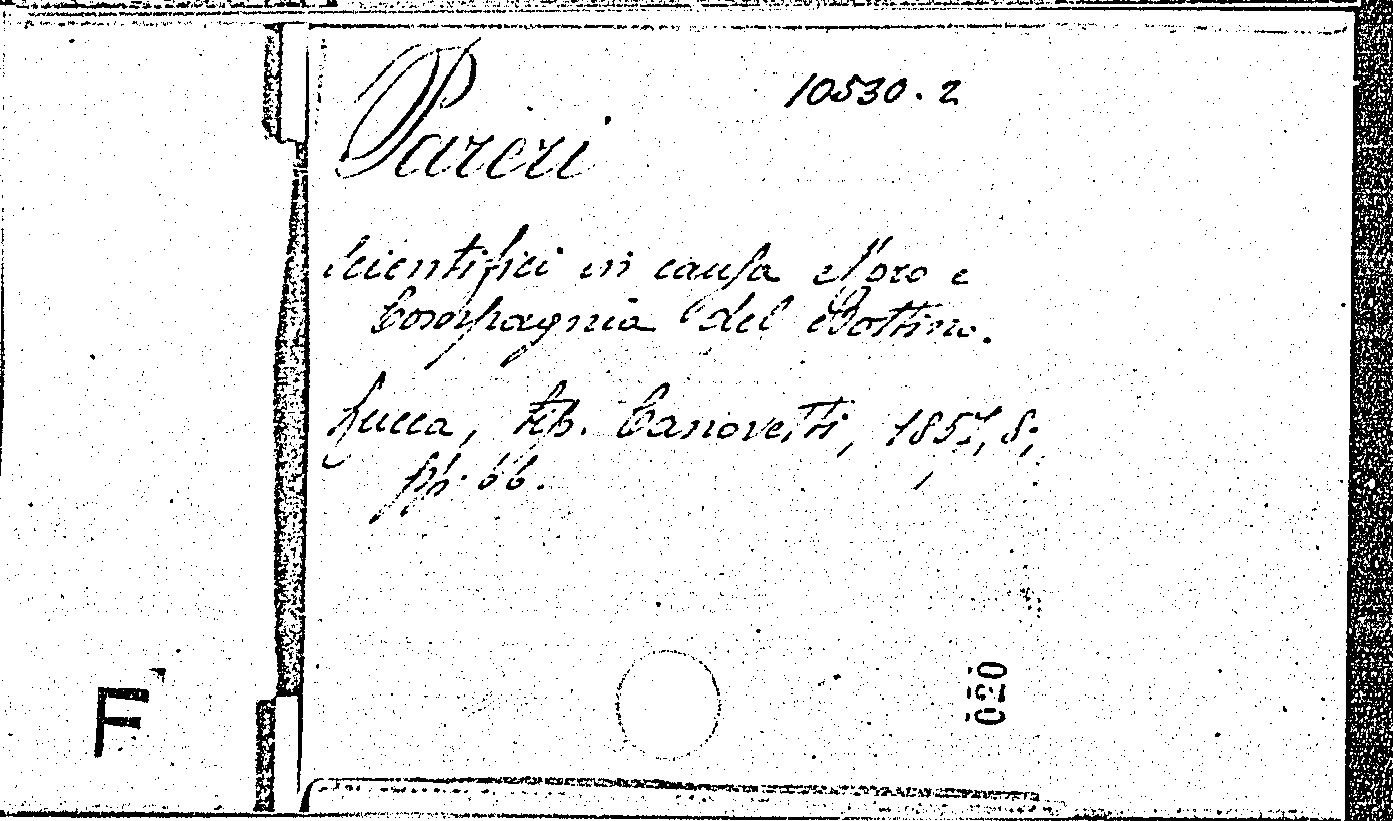 10530.2
Pareri
scientifici in causa Moro e
Compagnia del Bottino.
Lucca, tip. Canovetti, 1857, 8;
pp. 66.
020
F